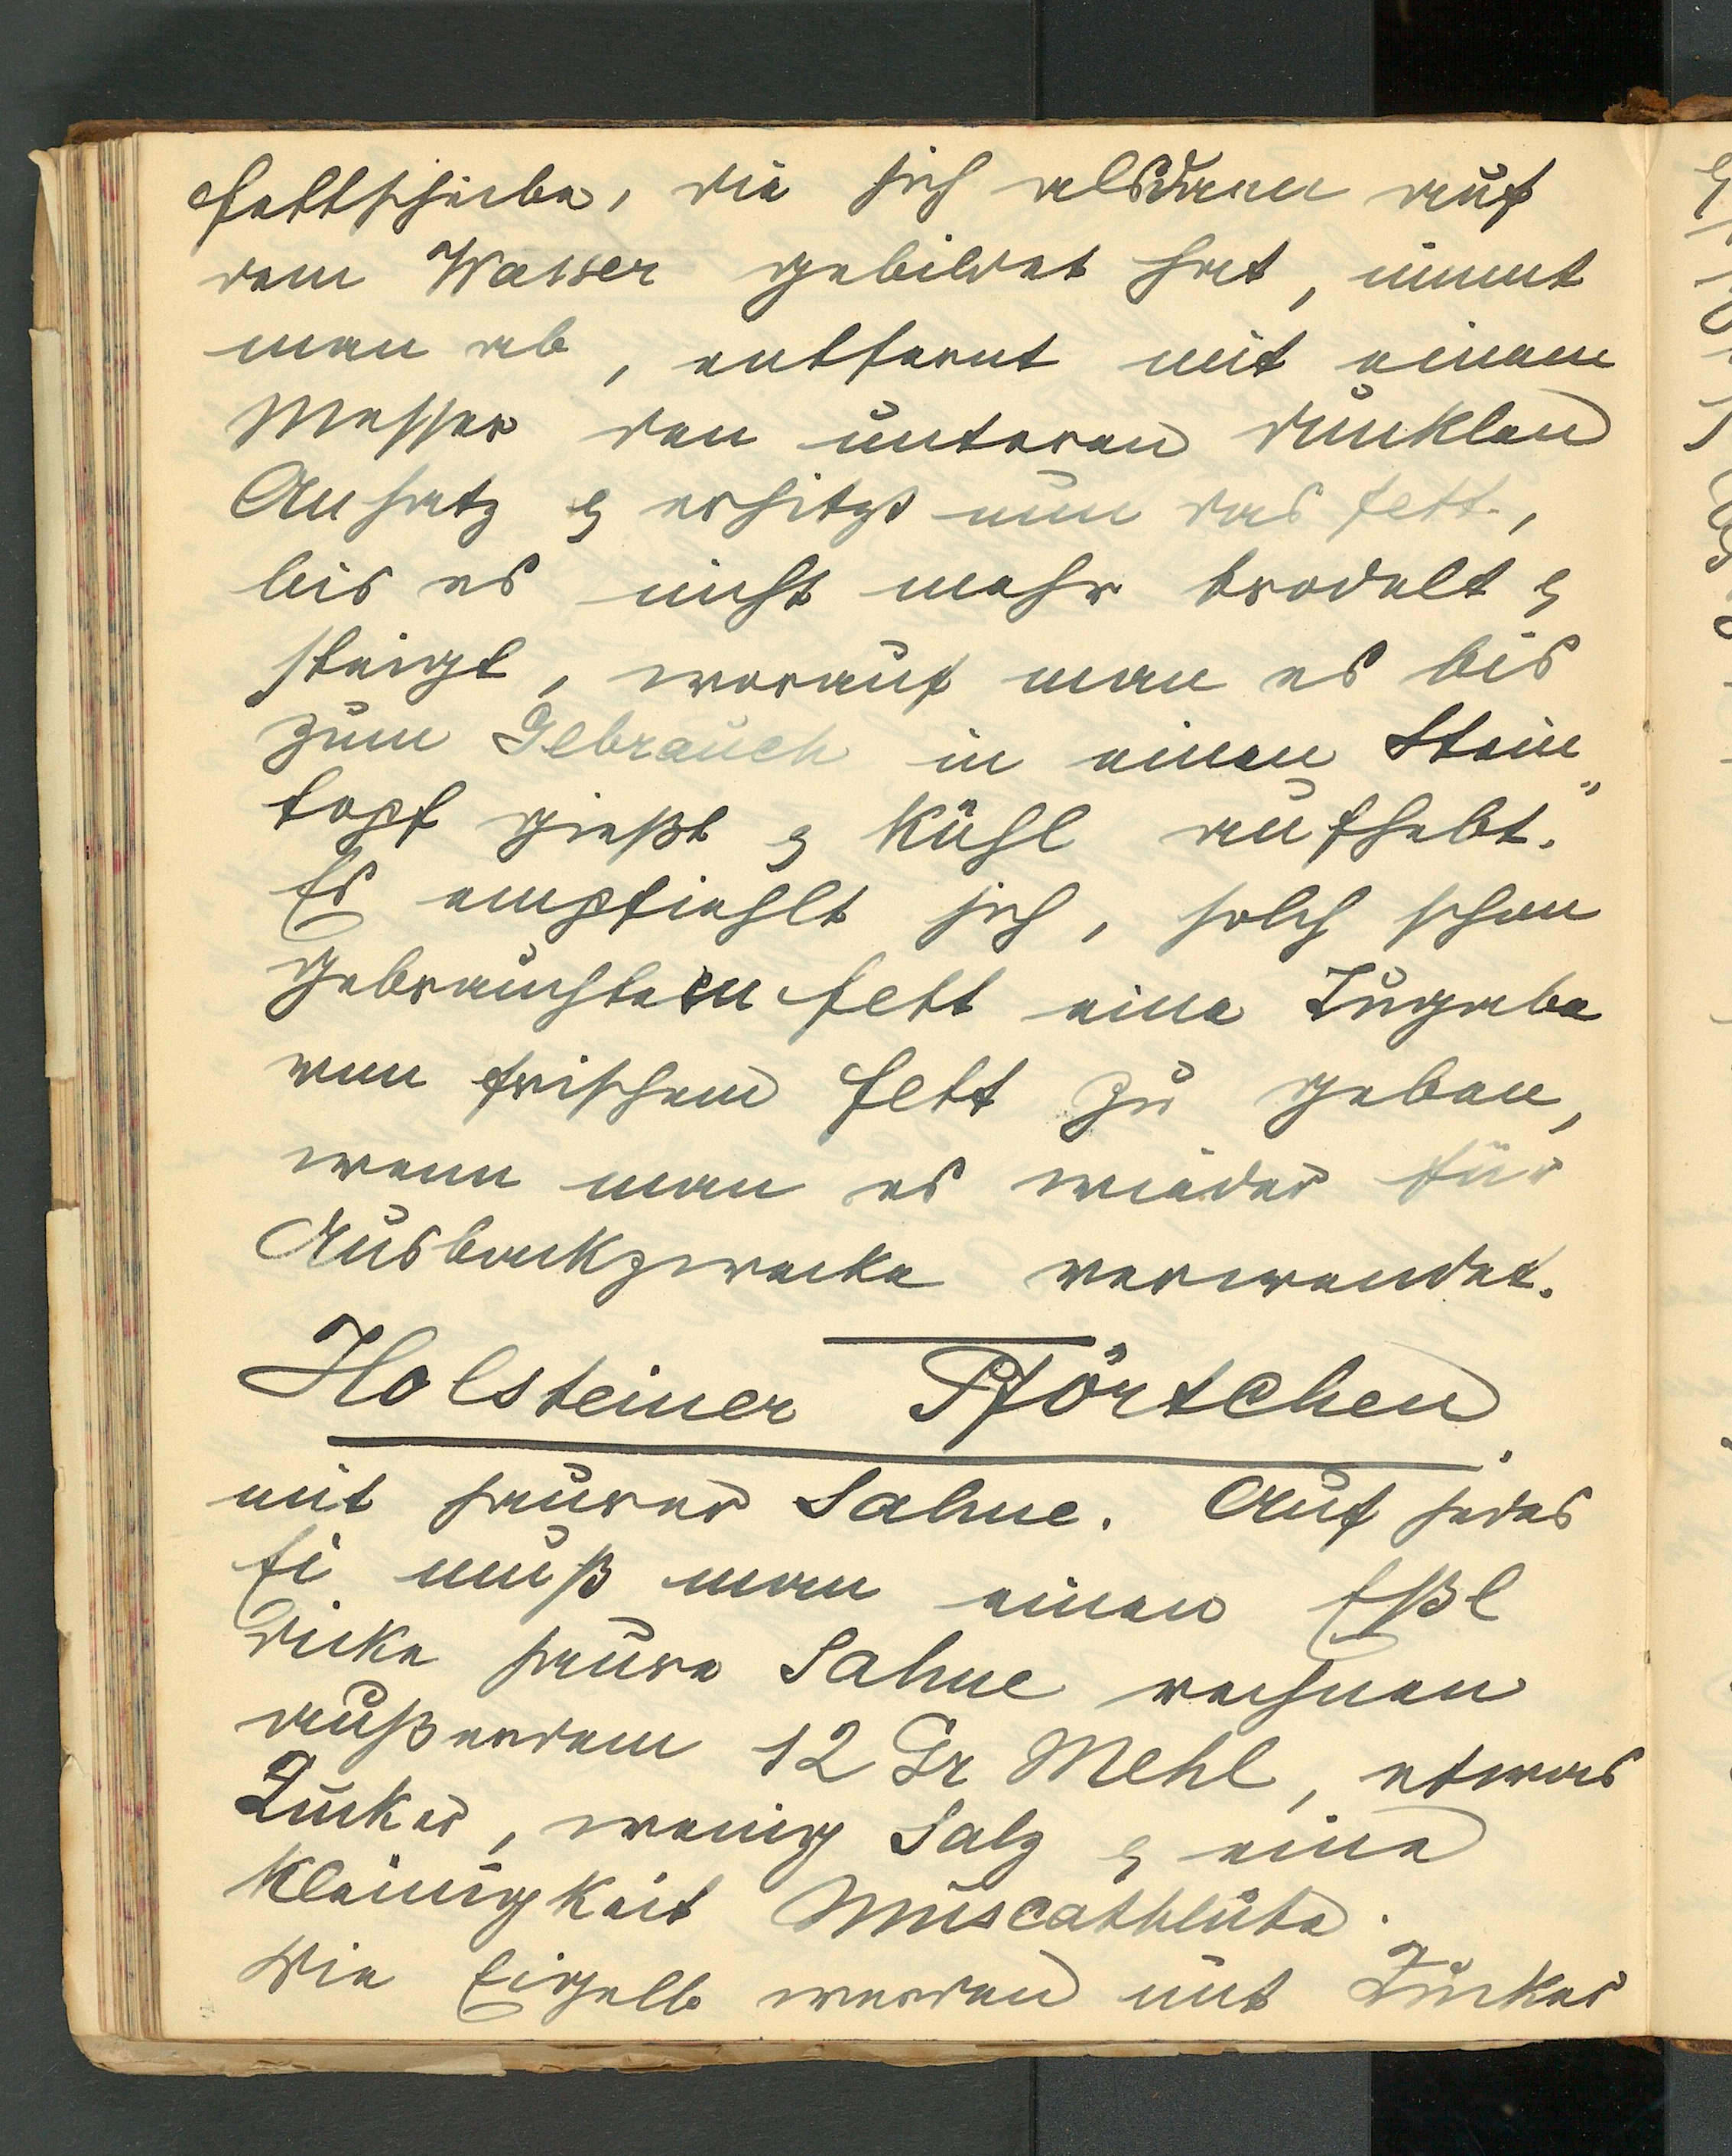 Fettscheibe, die sich alsdann auf
dem Wasser gebildet hat, nimmt
man ab, entfernt mit einem
Messer den unteren dunklen
Ansatz & erhitzt nun das Fett,
bis es nicht mehr brodelt &
steigt, worauf man es bis
zum Gebrauch in einen Stein„
topf gießt & kühl aufhebt.
Es empfiehlt sich, solch schon
gebrauchtem Fett eine Zugabe
von frischem Fett zu geben,
wenn man es wieder für
Ausbackzwecke verwendet.
Holsteiner Pförtchen.
mit saurer Sahne. Auf jedes
Ei muß man einen Eßl
dicke saure Sahne rechnen
außerdem 12 Gr Mehl, etwas
Zucker, wenig Salz & eine
Kleinigkeit Muscatblüte.
Die Eigelb werden mit Zucker